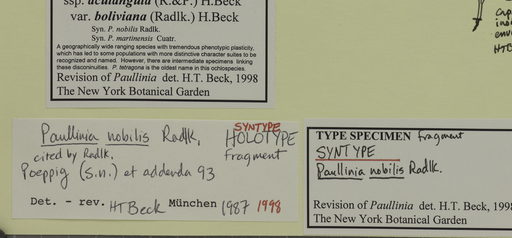 ssp. acutangula (R.&P.) H.Beck
var. boliviana (Radlk.) H.Beck
Syn. P. nobilis Radlk.
Syn. P. martinensis Cuatr.
A geographically wide ranging species with tremendous phenotypic plasticity,
which has led to some populations with more distinctive character suites to be
recognized and named. However, there are intermediate specimens linking
these disconinuities. P. tetragona is the oldest name in this ochlospecies.
Revision of Paullinia det. H.T. Beck, 1998
The New York Botanical Garden
Paullinia nobilis Radlk.
SYNTYPE
HOLOTYPE
fragment
cited by Radlk.
Poeppig (s.n.) et addenda 93
Det. - rev. HT Beck München 1987 1998
TYPE SPECIMEN fragment
SYNTYPE
Paullinia nobilis Radlk.
Revision of Paullinia det. H.T. Beck, 1998
The New York Botanical Garden
HTB